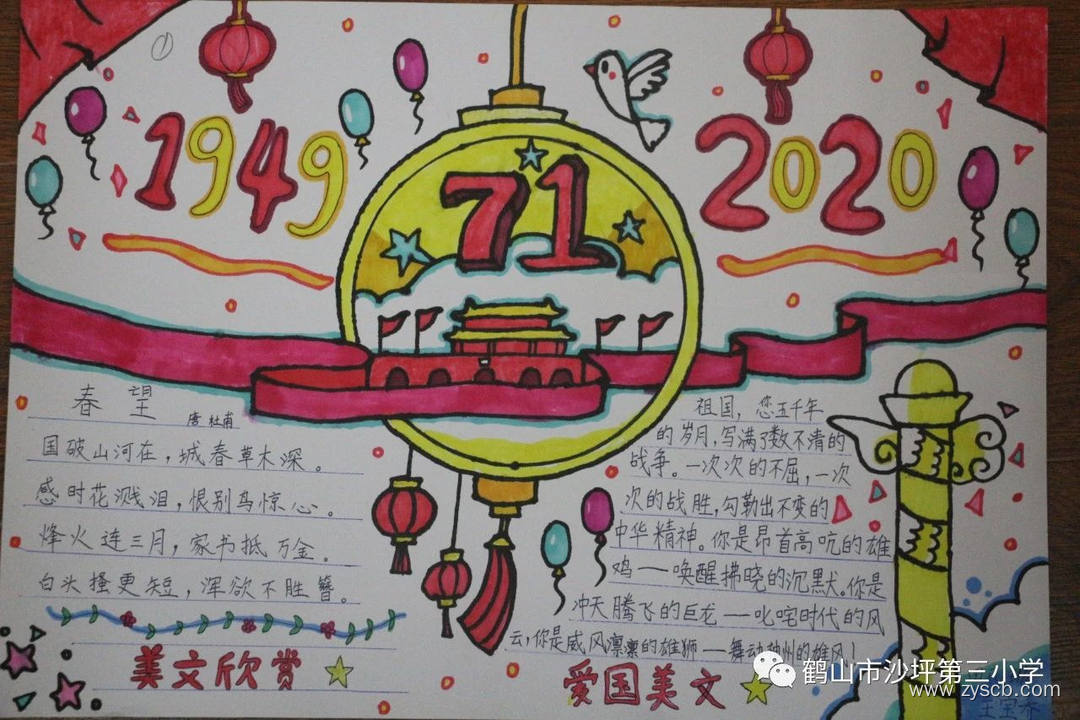 ①
1949
71
2020
春望
唐 杜甫
国破山河在，城春草木深。
感时花溅泪，恨别鸟惊心。
烽火连三月，家书抵万金。
白头搔更短，浑欲不胜簪。
美文欣赏
祖国，您五千年
的岁月，写满了数不清的
战争。一次次的不屈，一次
次的战胜，勾勒出不变的
中华精神。你是昂首高吭的雄
鸡——唤醒拂晓的沉默。你是
冲天腾飞的巨龙——叱咤时代的风
云，你是威风凛凛的雄狮——舞动神州的雄风！
爱国美文
鹤山市沙坪第三小学
www.zyscb.com